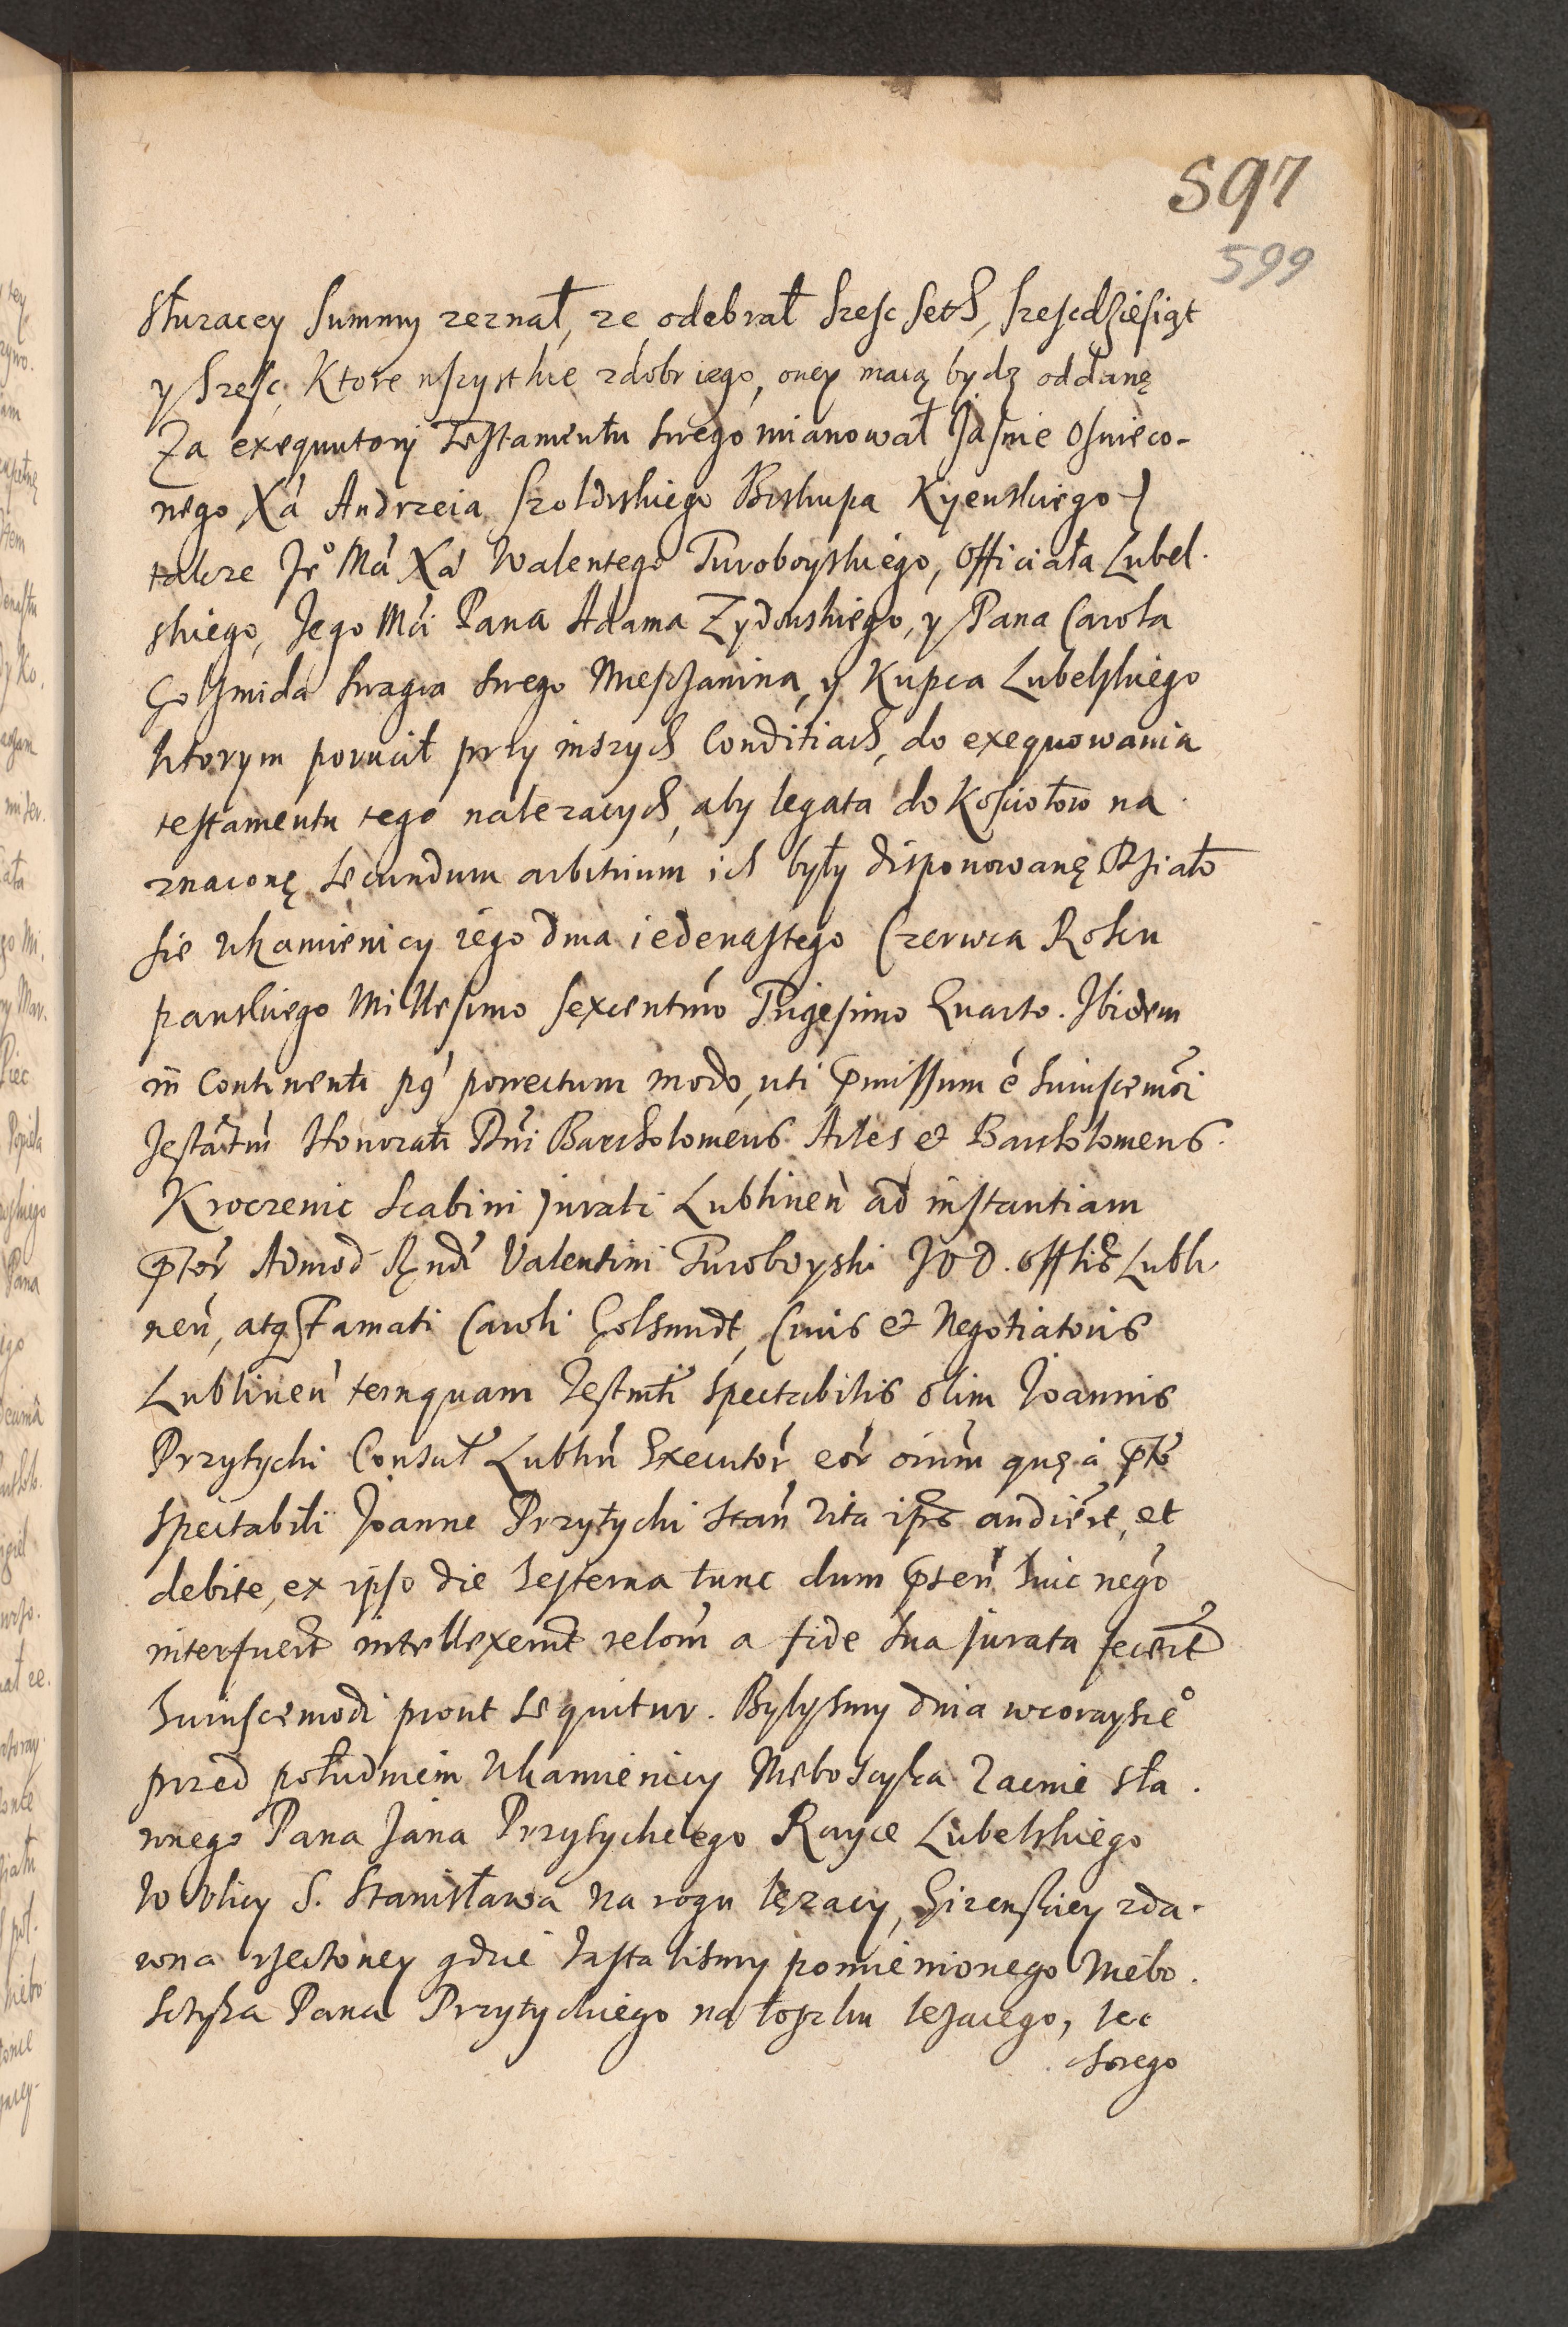 597
599
słuzacey summy zeznał, ze odebrał szesc seth, szescdziesiąt
y szesc, Ktore wszystkie zdobr iego, oney maią bydz oddanę
Za exequutory Testamentu swego mianował Jasnie Oswieco-
nego Xá Andrzeia Szoldrskiego Biskupa Kyewskiego
takze Jeº Mći Xá Walentego Turoboyskiego, Officiała Lubel.
skiego, Jego Mći Pana Adama Zydowskiego, y Pana Carola
Golsmida swagra swego Miesczanina, y Kupca Lubelskiego
ktorym porucił przy inszych Conditiach, do exequowania
testamentu tego nalezacych, aby legata do Kosciołow na
znaczonę secundum arbitrium ich były disponowanę Dział̃o
sie wkamienicy iego dnia iedenastego Czerwca Roku
panskiego Millesimo sexcentmo Trigesimo Quarto. Ibidem
in Continenti porrectum modo, uti pmissum ẽ huiuscemoi
Testam̃tũ Honorati Dni Bartholomeus Artes et Bartholomeus
Kroczenic Scabini jurati Lublineñ ad instantiam
ptor̃ Admod Rñdi Valentini Turoboyski JVD. offlis Lubli.
neñ, atq Famati Caroli Golsmidt, Civis et Negotiatoris
Lublineñ temquam Testmti spectabilis olim Joannis
Przytycki Consul Lubliñ Executor eor oium quę á pto
spectabili Joanne Przytycki Stañ Vita ips audiert, et
debite, ex ipso die hesterna tunc dum pseñ huic nego
interfuert intellexerunt relom̃ a fide sua jurata fecert
huiuscemodi prout sequitur. Bylysmy dnia wcoraysze°
przed południem wkamienicy Nieboscyka Zacnie sła.
wnego Pana Jana Przytyckiego Rayce Lubelskiego
w Vlicy S. Stanisława na rogu lęzacy, zda.
wna rzeczoney gdzie zastalismy pomienionego Niebo.
sczyka Pana Przytyckiego na łoszku lezacego, lec
chorego